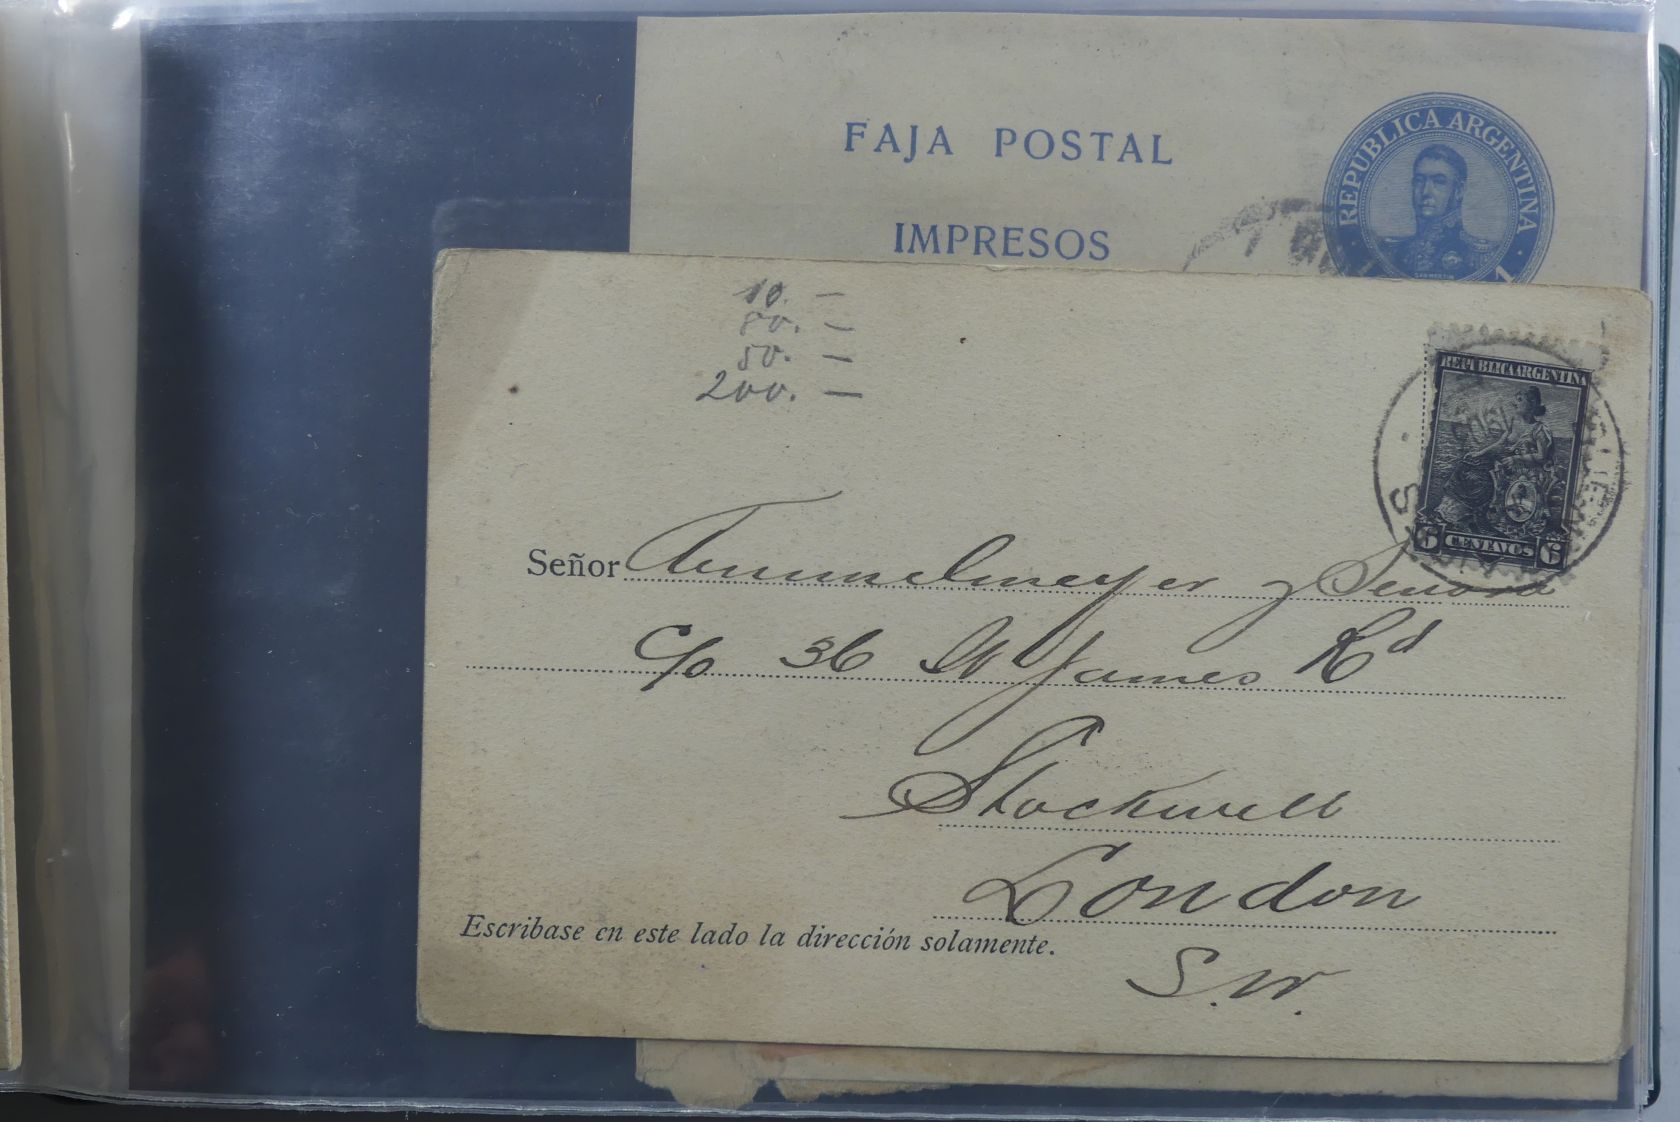 FAJA POSTAL
IMPRESOS
REPUBLICA ARGENTINA
SAN MARTIN
1
10. —
80. —
50. —
200. —
REPUBLICA ARGENTINA
6 CENTAVOS 6
Señor y Señora
c/o 36 St James Rd
Stockwell
London
S.W.
Escribase en este lado la dirección solamente.